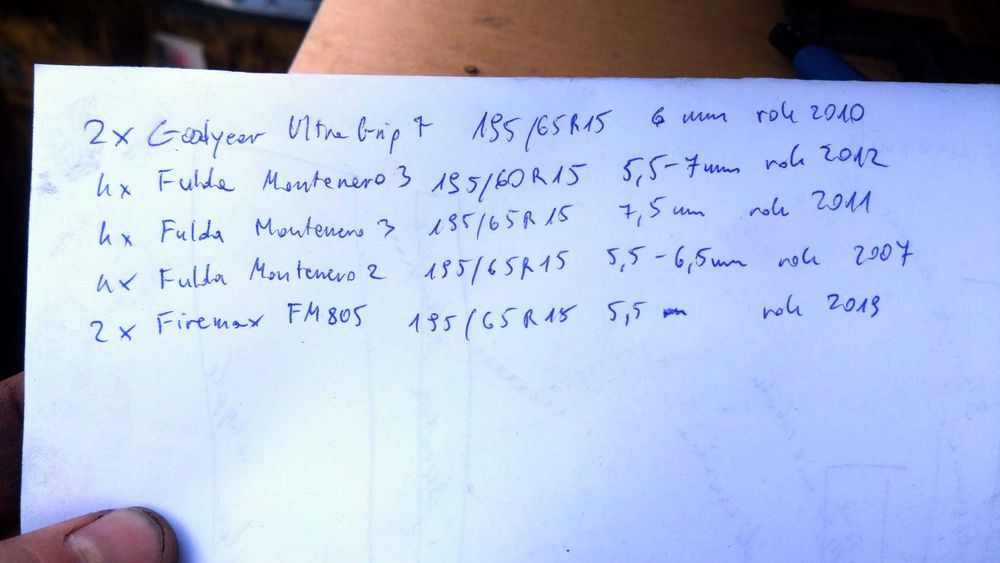 2x Goodyear Ultra Grip 7 195/65R15 6 mm rok 2010
4x Fulda Montenero 3 195/60R15 5,5-7mm rok 2012
4x Fulda Montenero 3 195/65R15 7,5mm rok 2011
4x Fulda Montenero 2 195/65R15 5,5-6,5mm rok 2007
2x Firemax FM805 195/65R15 5,5 mm rok 2019